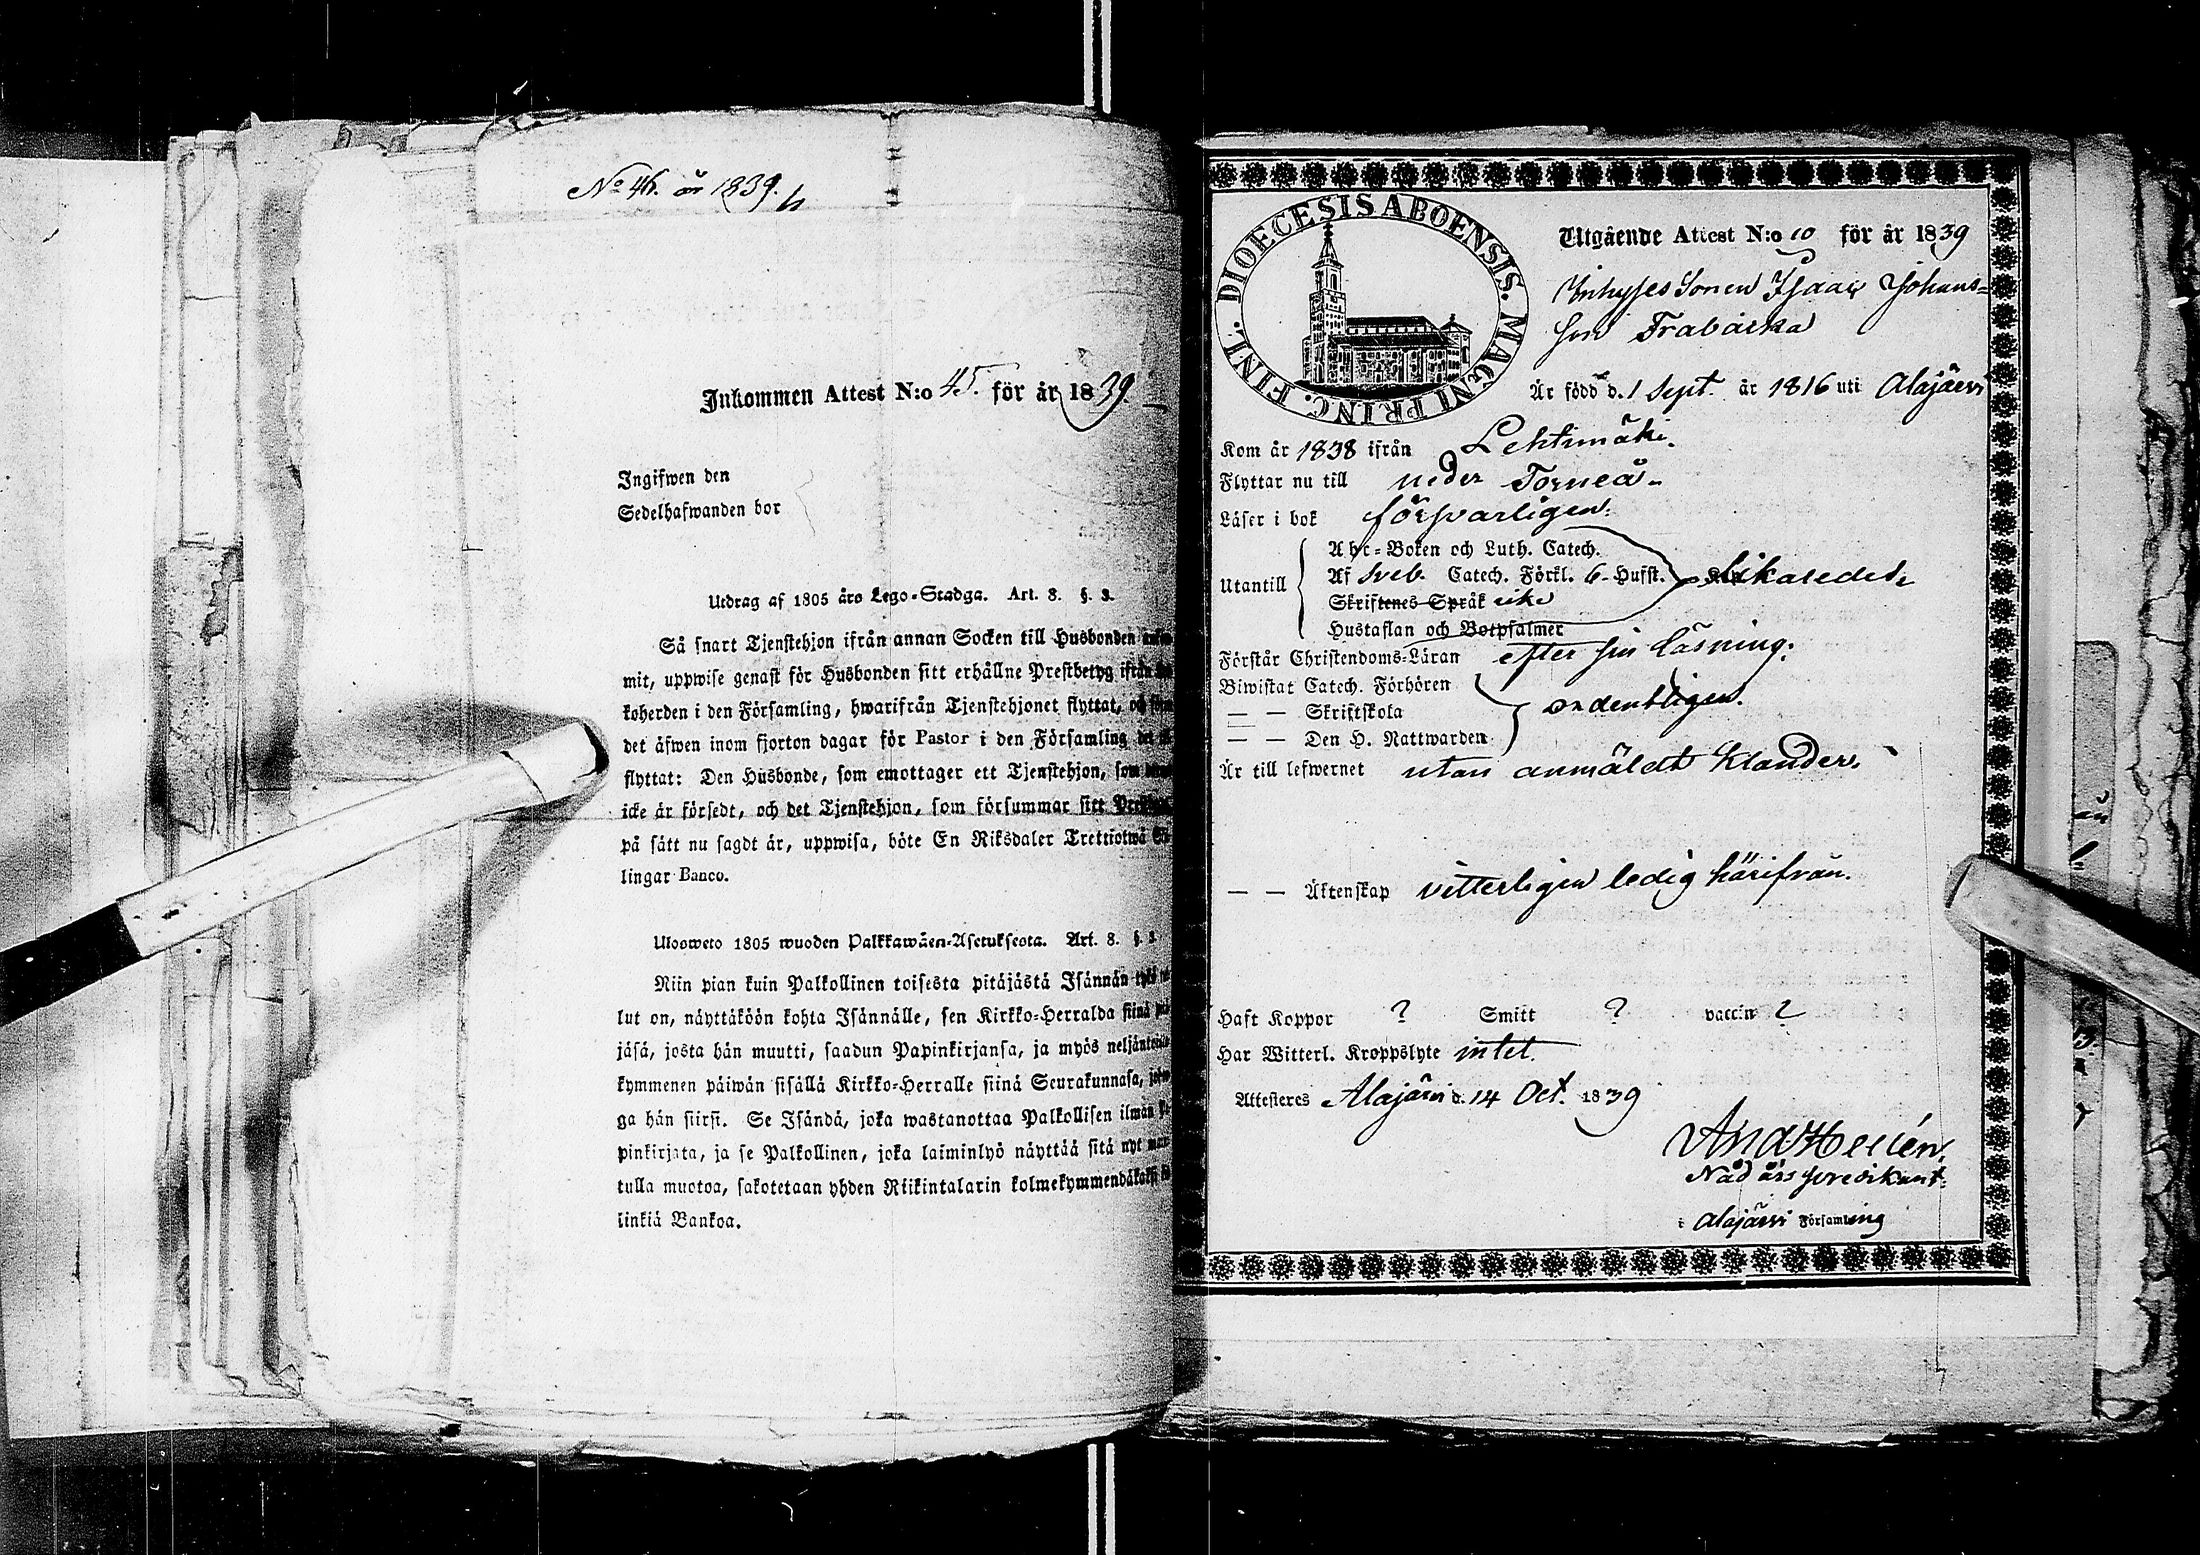 No 46. år 1839.
Inkommen Attest N:o 45. för år 1839.
Ingifwen den
Sedelhafwanden bor
Utdrag af 1805 års Lego-Stadga. Art. 8. §. 3.
Så snart Tjenstehjon ifrån annan Socken till Husbonden
mit, uppwise genast för Husbonden sitt erhållne Prestbetyg ifrån
koherden i den Församling, hwarifrån Tjenstehjonet flyttat, och
det äfwen inom fjorton dagar för Pastor i den Församling det
flyttat: Den Husbonde, som emottager ett Tjenstehjon, som
icke är försedt, och det Tjenstehjon, som försummar sitt
på sätt nu sagdt är, uppwisa, böte En Riksdaler Trettiotwå
lingar Banco.
Uloswето 1805 wuoden Palkkawäen-Asetuksesta. Art. 8. §. 3.
Niin pian kuin Palkollinen toisesta pitäjästä Isännän
lut on, näyttäköön kohta Isännälle, sen Kirkko-Herralda siinä
jäsä, josta hän muutti, saadun Papinkirjansa, ja myös
kymmenen päiwän sisällä Kirkko-Herralle siinä Seurakunnasa,
ga hän siirsi. Se Isändä, joka wastanottaa Palkollisen ilman
pinkirjata, ja se Palkollinen, joka laiminlyö näyttää sitä nyt
tulla muotoa, sakotetaan yhden Riikintalarin
linkiä Bankoa.
DIOECESIS ABOENSIS. MAGNI PRINC. FINL.
Utgående Attest N:o 10 för år 1839
Inhyses Sonen Isaac Johans=
son Trabacka
Är född d. 1 Sept. år 1816 uti Alajärvi
Kom år 1838 ifrån Lehtimäki.
Flyttar nu till neder Torneå
Läser i bok försvarligen.
Utantill
Abc-Boken och Luth. Catech.
Af Sveb. Catech. Förkl. 6 Hufst. likaledes
Skriftenes Språk
Hustaflan och Botpsalmer
Förstår Christendoms-Läran efter sin läsning.
Biwistat Catech. Förhören
— — Skriftskola ordentligen.
— — Den H. Nattwarden
Är till lefwernet utan anmäldt klander.
— — Äktenskap vitterligen ledig härifrån.
Haft Koppor ? Smitt ? vaccin ?
Har Witterl. Kroppslyte intet.
Attesteres Alajärvi d. 14 Oct. 1839
i Alajärvi Församling